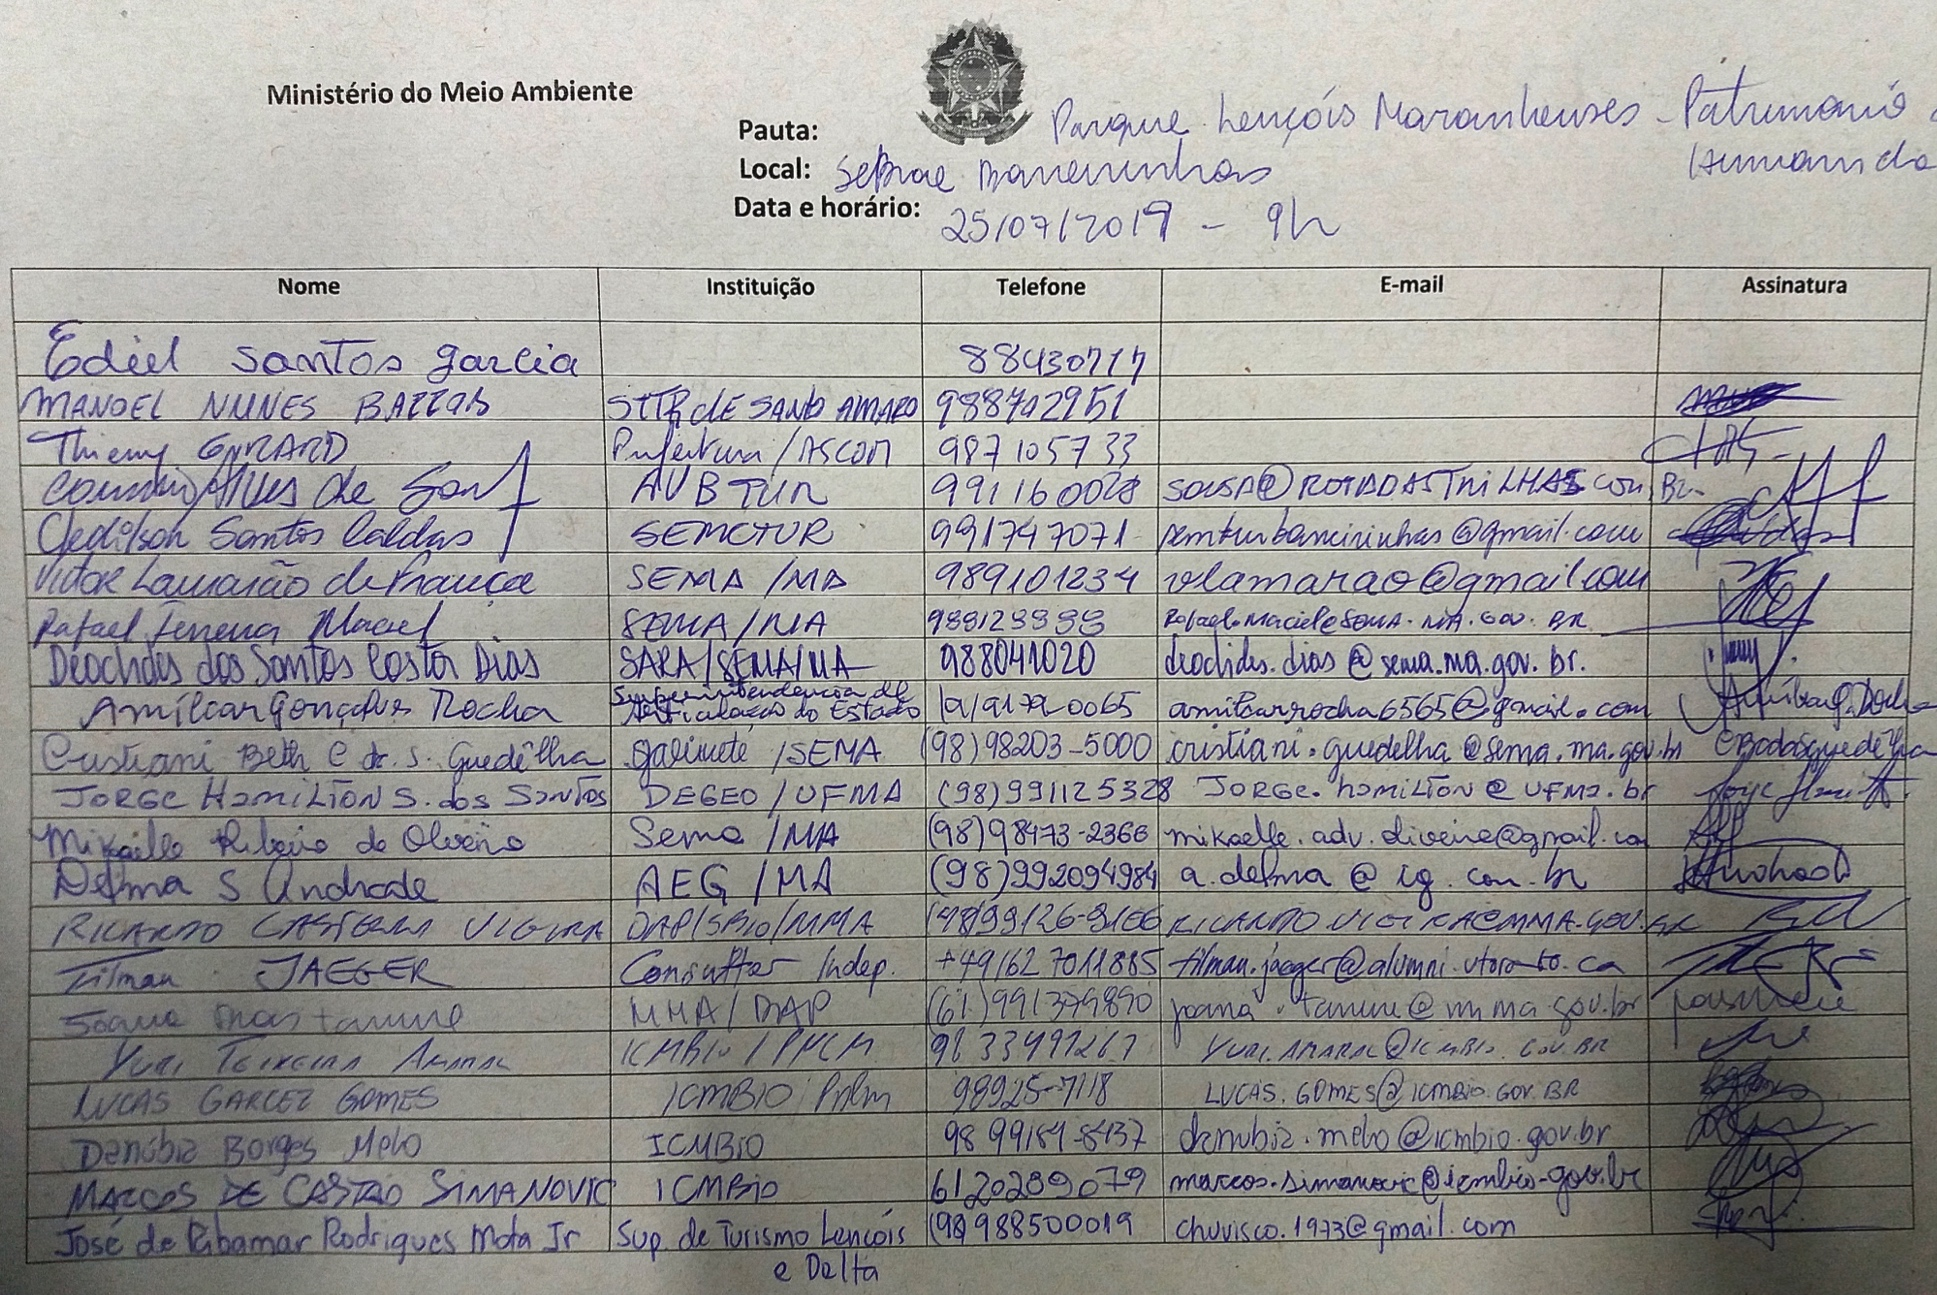 Ministério do Meio Ambiente
Pauta: Parque Lençóis Maranhenses - Patrimonio
Humanida
Local: Sebrae Barreirinhas
Data e horário: 25/07/2019 - 9h
Nome Instituição Telefone E-mail Assinatura
Ediel Santos garcia 88430717
MANOEL NUNES STTR dE SANTO AMARO 988702951
Thierry GIRARD Prefeitura /ASCOM 987105733
Alves de AVBTUR 991160028 SOUSA@ROTADASTRILHAS.COM.BR
Cledilson Santos Caldas SEMCTUR 991747071
Victor Lamarão de França SEMA /MA 989101234 vlamarao@gmail.com
Rafael Ferreira Maciel SEMA/MA Rafael.Maciel@SEMA.MA.GOV.BR
Deochdes dos Santos Costa Dias SARA/SEMA/MA 988041020 deochides.dias@sema.ma.gov.br.
Amilcar Gonçalves Rocha Superintendencia de
Articulação do Estado amilcarrocha6565@gmail.com Amilcar G. Rocha
Cristiani Beth C dr. S. Guedêlha gabinete /SEMA (98)98203-5000 cristiani.guedelha@sema.ma.gov.br
JORGE HAMILTON S. dos SANTOS DEGEO/UFMA (98)991125328 JORGE.hamilton@UFMA.br
Mikaelle Ribeiro de Oliveira Sema /MA (98)98473-2366 mikaelle.adv.oliveira@gmail.co
Delma S Andrade AEG /MA (98)992094984 a.delma@ig.com.br
RICARDO CASTELLI VIEIRA DAP/SBio/MMA RICARDO.VIEIRA@MMA.GOV.BR
Tilman JAEGER Consultor Indep. +491627011885 tilman.jaeger@alumni.utoronto.ca
MMA/DAP (61)991379890 joana.tamure@mma.gov.br
YURI TEIXEIRA AMARAL ICMBIO/PNLM 98 33491267 YURI.AMARAL@ICMBIO.GOV.BR
LUCAS GARCEZ GOMES ICMBIO PNLM 98925-7118 LUCAS.GOMES@ICMBIO.GOV.BR
Danúbia Borges Melo ICMBIO 98 99184-8437 danubia.melo@icmbio.gov.br
MARCOS DE CASTRO SIMANOVIC ICMBio 6120289079 marcos.simanovic@icmbio.gov.br
José de Ribamar Rodrigues Mota Jr Sup. de Turismo Lençóis (98) 988500019 chuvisco.1973@gmail.com
e Delta